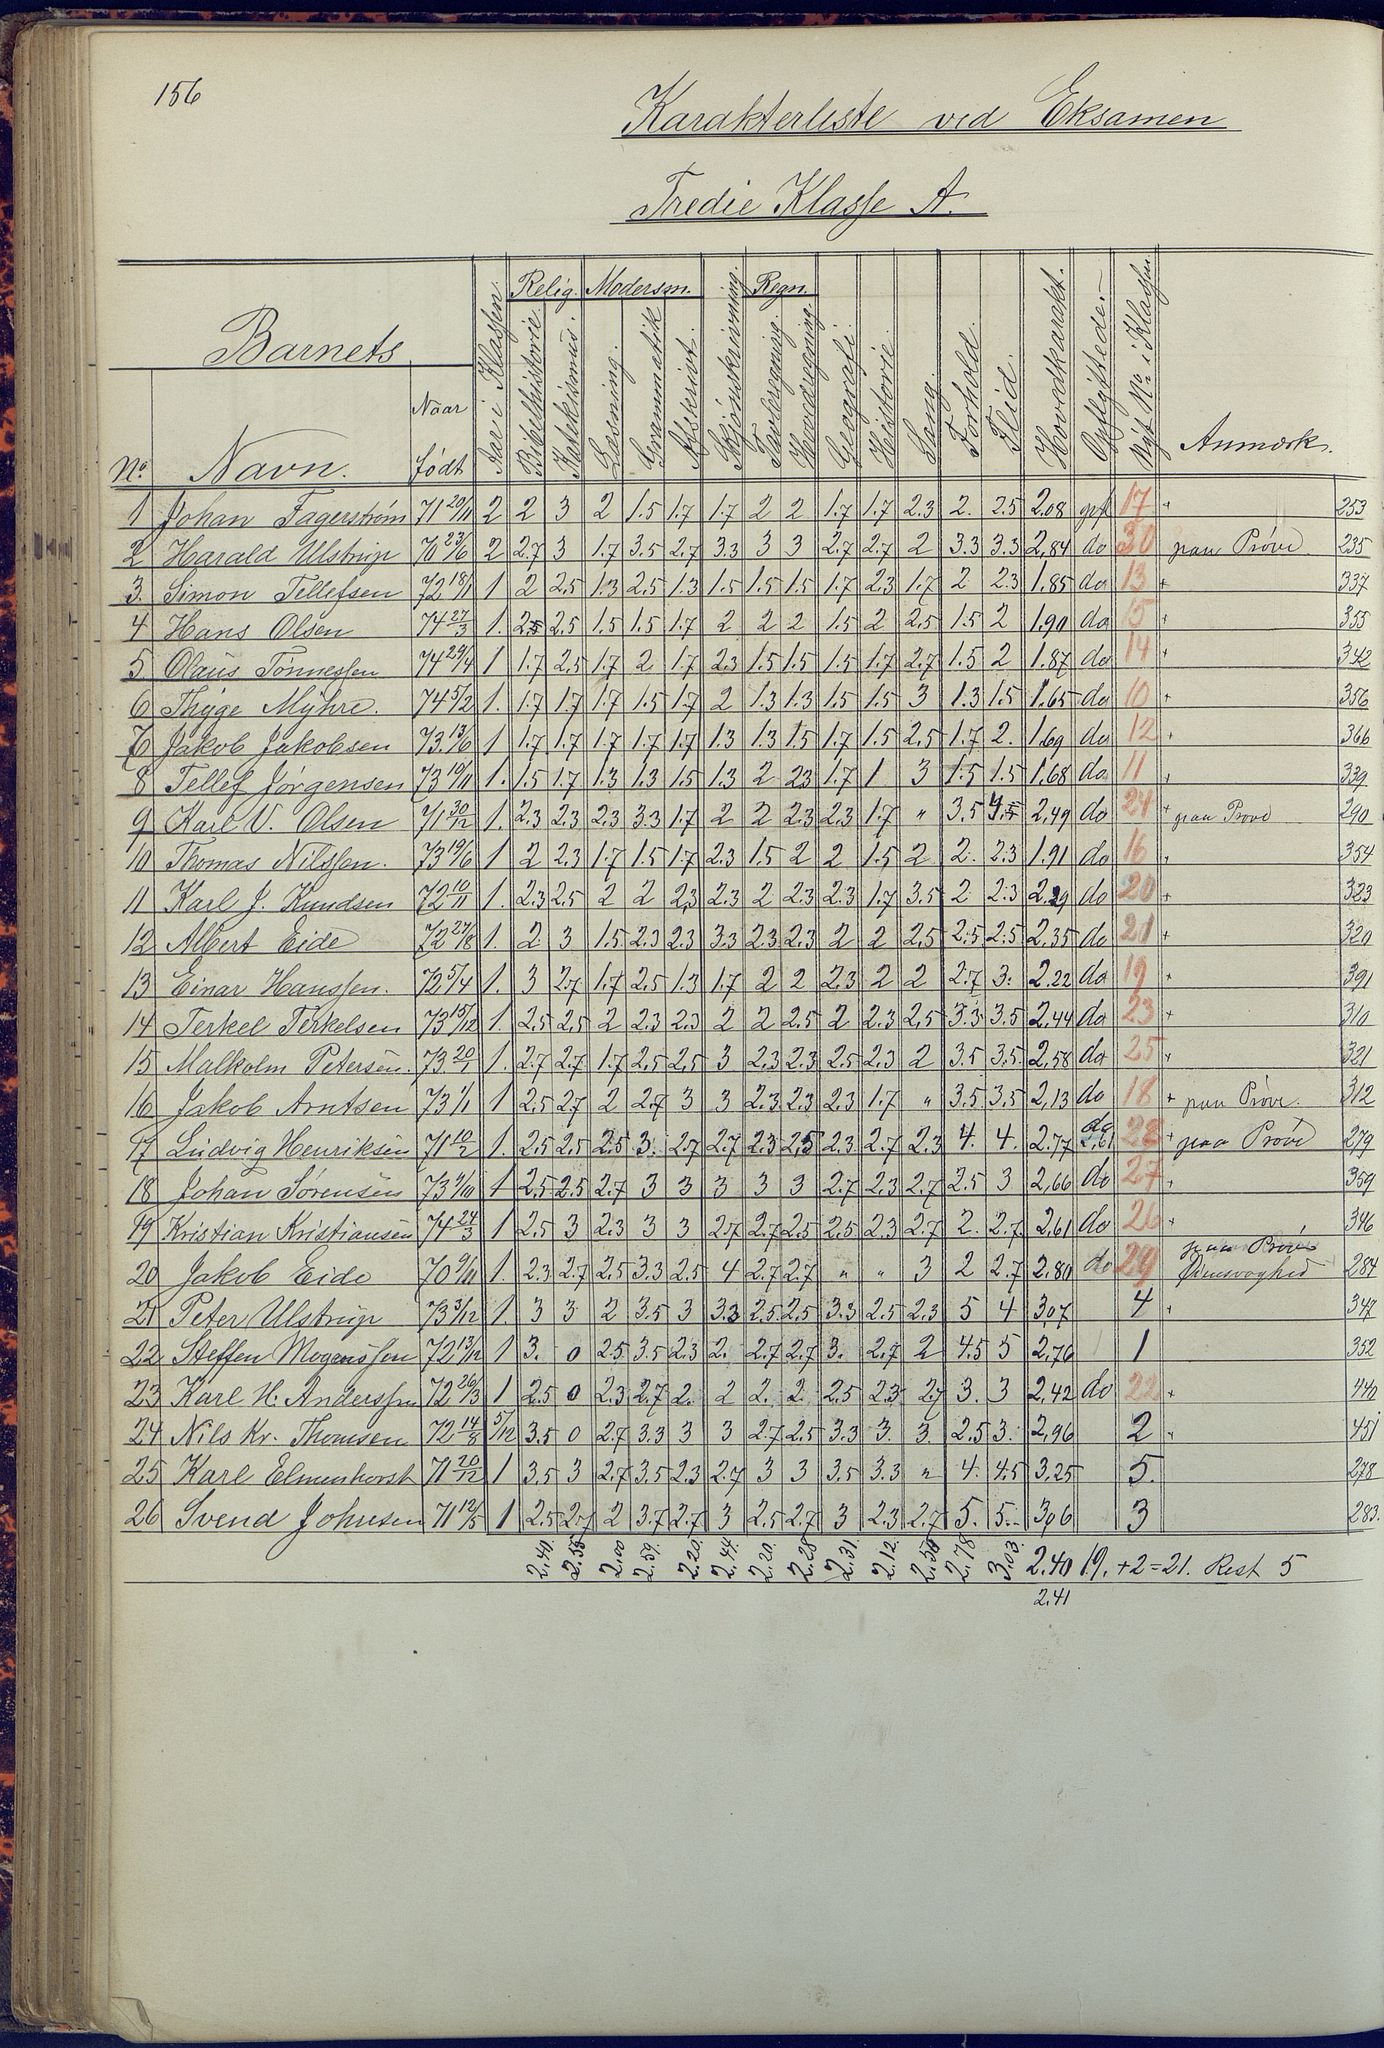 156
Karakterliste ved Eksamen
Tredie Klasse A.
Relig. Modersm. Regn.
Barnets
No. Navn. Naar født Aar i Klassen. Bibelhistorie. Katekismus. Læsning. Grammatik Afskrivt. Skjönskrivning. Tavleregning. Hovedregning. Geografi. Historie. Sang. Forhold. Flid. Hovedkarakt. Opflyttede. Nyt No. i Klassen. Anmærk.
1 Johan Fagerstrøm 71 20/11 2 2 3 2 1.5 1.7 1.7 2 2 1.7 1.7 2.3 2. 2.5 2.08 opfl 17 " 253
2 Harald Ulstrup 70 23/6 2 2.7 3 1.7 3.5 2.7 3.3 3 3 2.7 2.7 2 3.3 3.3 2,84 do 30 paa Prøve 235
3. Simon Tellefsen 72 18/11 1 2 2,5 1.3 2.5 1.3 1.5 1.5 1.5 1.7 2.3 1.7 2 2.3 1.85 do 13 + 337
4 Hans Olsen 74 27/3 1. 2.5 2.5 1.5 1.5 1.7 2 2 2 1.5 2 2,5 1.5 2 1.90 do 15 + 355
5 Olaus Tønnessen 74 29/4 1 1.7 2,5 1.7 2 1.7 2.3 1.5 1.5 1.5 1.7 2.7 1.5 2 1.87 do 14 + 342
6 Thyge Myhre. 74 5/2 1. 1.7 1.7 1.7 1.5 1.7 2 1.3 1.3 1.5 1.5 3 1.3 1.5 1.65 do 10 + 356
7 Jakob Jakobsen 73 13/6 1 1.7 1.7 1.7 1.7 1.7 1.3 1.3 1.5 1.7 1.5 2.5 1.7 2. 1.69 do 12 + 366
8 Tellef Jørgensen 73 19/11 1. 1.5 1.7 1.3 1.3 1.5 1.3 2 2.3 1.7 1 3 1.5 1.5 1.68 do 11 + 339
9 Karl V. Olsen 71 30/12 1. 2.3 2.3 2.3 3.3 1.7 2 2 2.3 2.3 1.7 " 3.5 4.5 2,49 do 24 + paa Prøve 290
10 Thomas Nilssen. 73 19/6 1 2 2.3 1.7 1.5 1.7 2.3 1.5 2 2 1.5 2 2. 2.3 1.91 do 16 " 354
11 Karl J. Knudsen 72 10/11 1. 2.3 2,5 2 2 2,3 2.3 2 2.3 2.3 1.7 3.5 2 2.3 2.29 do 20 + 323
12 Albert Eide 72 27/8 1. 2 3 1.5 2.3 2.3 3.3 2.3 2.3 2 2 2,5 2.5 2.5 2.35 do 21 + 320
13 Einar Hanssen. 72 5/4 1. 3 2.7 1.7 2,5 1.3 1.7 2 2 2,3 2 2 2.7 3. 2.22 do 19 + 391
14 Terkel Terkelsen 73 15/12 1. 2,5 2,5 2 2.3 2.3 2 2 2.5 2 2.3 2,5 3.3 3.5 2.44 do 23 + 310
15 Malkolm Petersen. 73 20/1 1. 2.7 2.7 1.7 2,5 2,5 3 2.3 2.3 2,5 2.3 2 3.5 3.5. 2,58 do 25 + 321
16 Jakob Arntsen 73 1/1 1 2,5 2.7 2 2.7 3 3 2.3 2.3 2.3 1.7 " 3.5 3.5 2,13 do 18 + paa Prøve. 312
17 Ludvig Henriksen 71 10/2 1. 2.5 2,5 2.5 3. 2.7 2.7 2.3 2,5 2.3 2.7 2.3 4. 4. 2.77 do 2,61 28 + paa Prøve 279
18 Johan Sørensen 73 9/10 1 2.5. 2.5 2.7 3 3 3 3 3 2.7 2,3 2.7 2.5 3 2,66 do 27 + 359
19 Kristian Kristiansen 74 24/3 1 2,5 3 2.3 3 3 2.7 2.7 2.5 2,5 2.3 2.7 2. 2.7 2,61 do 26 + 346
20 Jakob Eide 70 9/11 1. 2.3 2.7 2.5 3.3 2.5 4 2.7 2.7 " " 3 2 2.7 2,80 do 29 paa Prøve 284
21 Peter Ulstrup 73 3/12 1. 3 3 2 3.5 3 3.3 2.5 2.5 3.3 2.5 2.3 5 4 3,07 4 + 347
22 Steffen Mogenssen 72 13/12 1 3. 0 2.5 3.5 2.3 2. 2.7 2.7 3. 2.7 2 4.5 5 2,76 1 352
23 Karl H. Anderssen 72 26/3 1 2.5 0 2.3 2.7 2. 2 2. 2. 2.5 2.3 2.7 3. 3 2,42 do 22 + 440
24 Nils Kr. Thomsen 72 14/8 5/12 3.5 0 2.7 3.3 3 3 2.7 2.5 3.3 3. 3. 2.5 3. 2,96 2 " 451
25 Karl Elmenhorst 71 20/12 1 3.5 3 2.7 3.5 2.3 2.7 3 3 3.5 3.3 " 4. 4.5 3,25 5. 278
26 Svend Johnsen 71 12/5 1 2.5 2.7 2 3.7 2.7 3 2.5 2.7 3 2.3 2.7 5. 5. 3,06 3 283.
2.40. 2.55 2.00 2.59. 2.20 2.44 2.20 2.28 2.31 2.12. 2.50 2.78 3.03. 2.40 19. +2=21. Rest 5
2.41